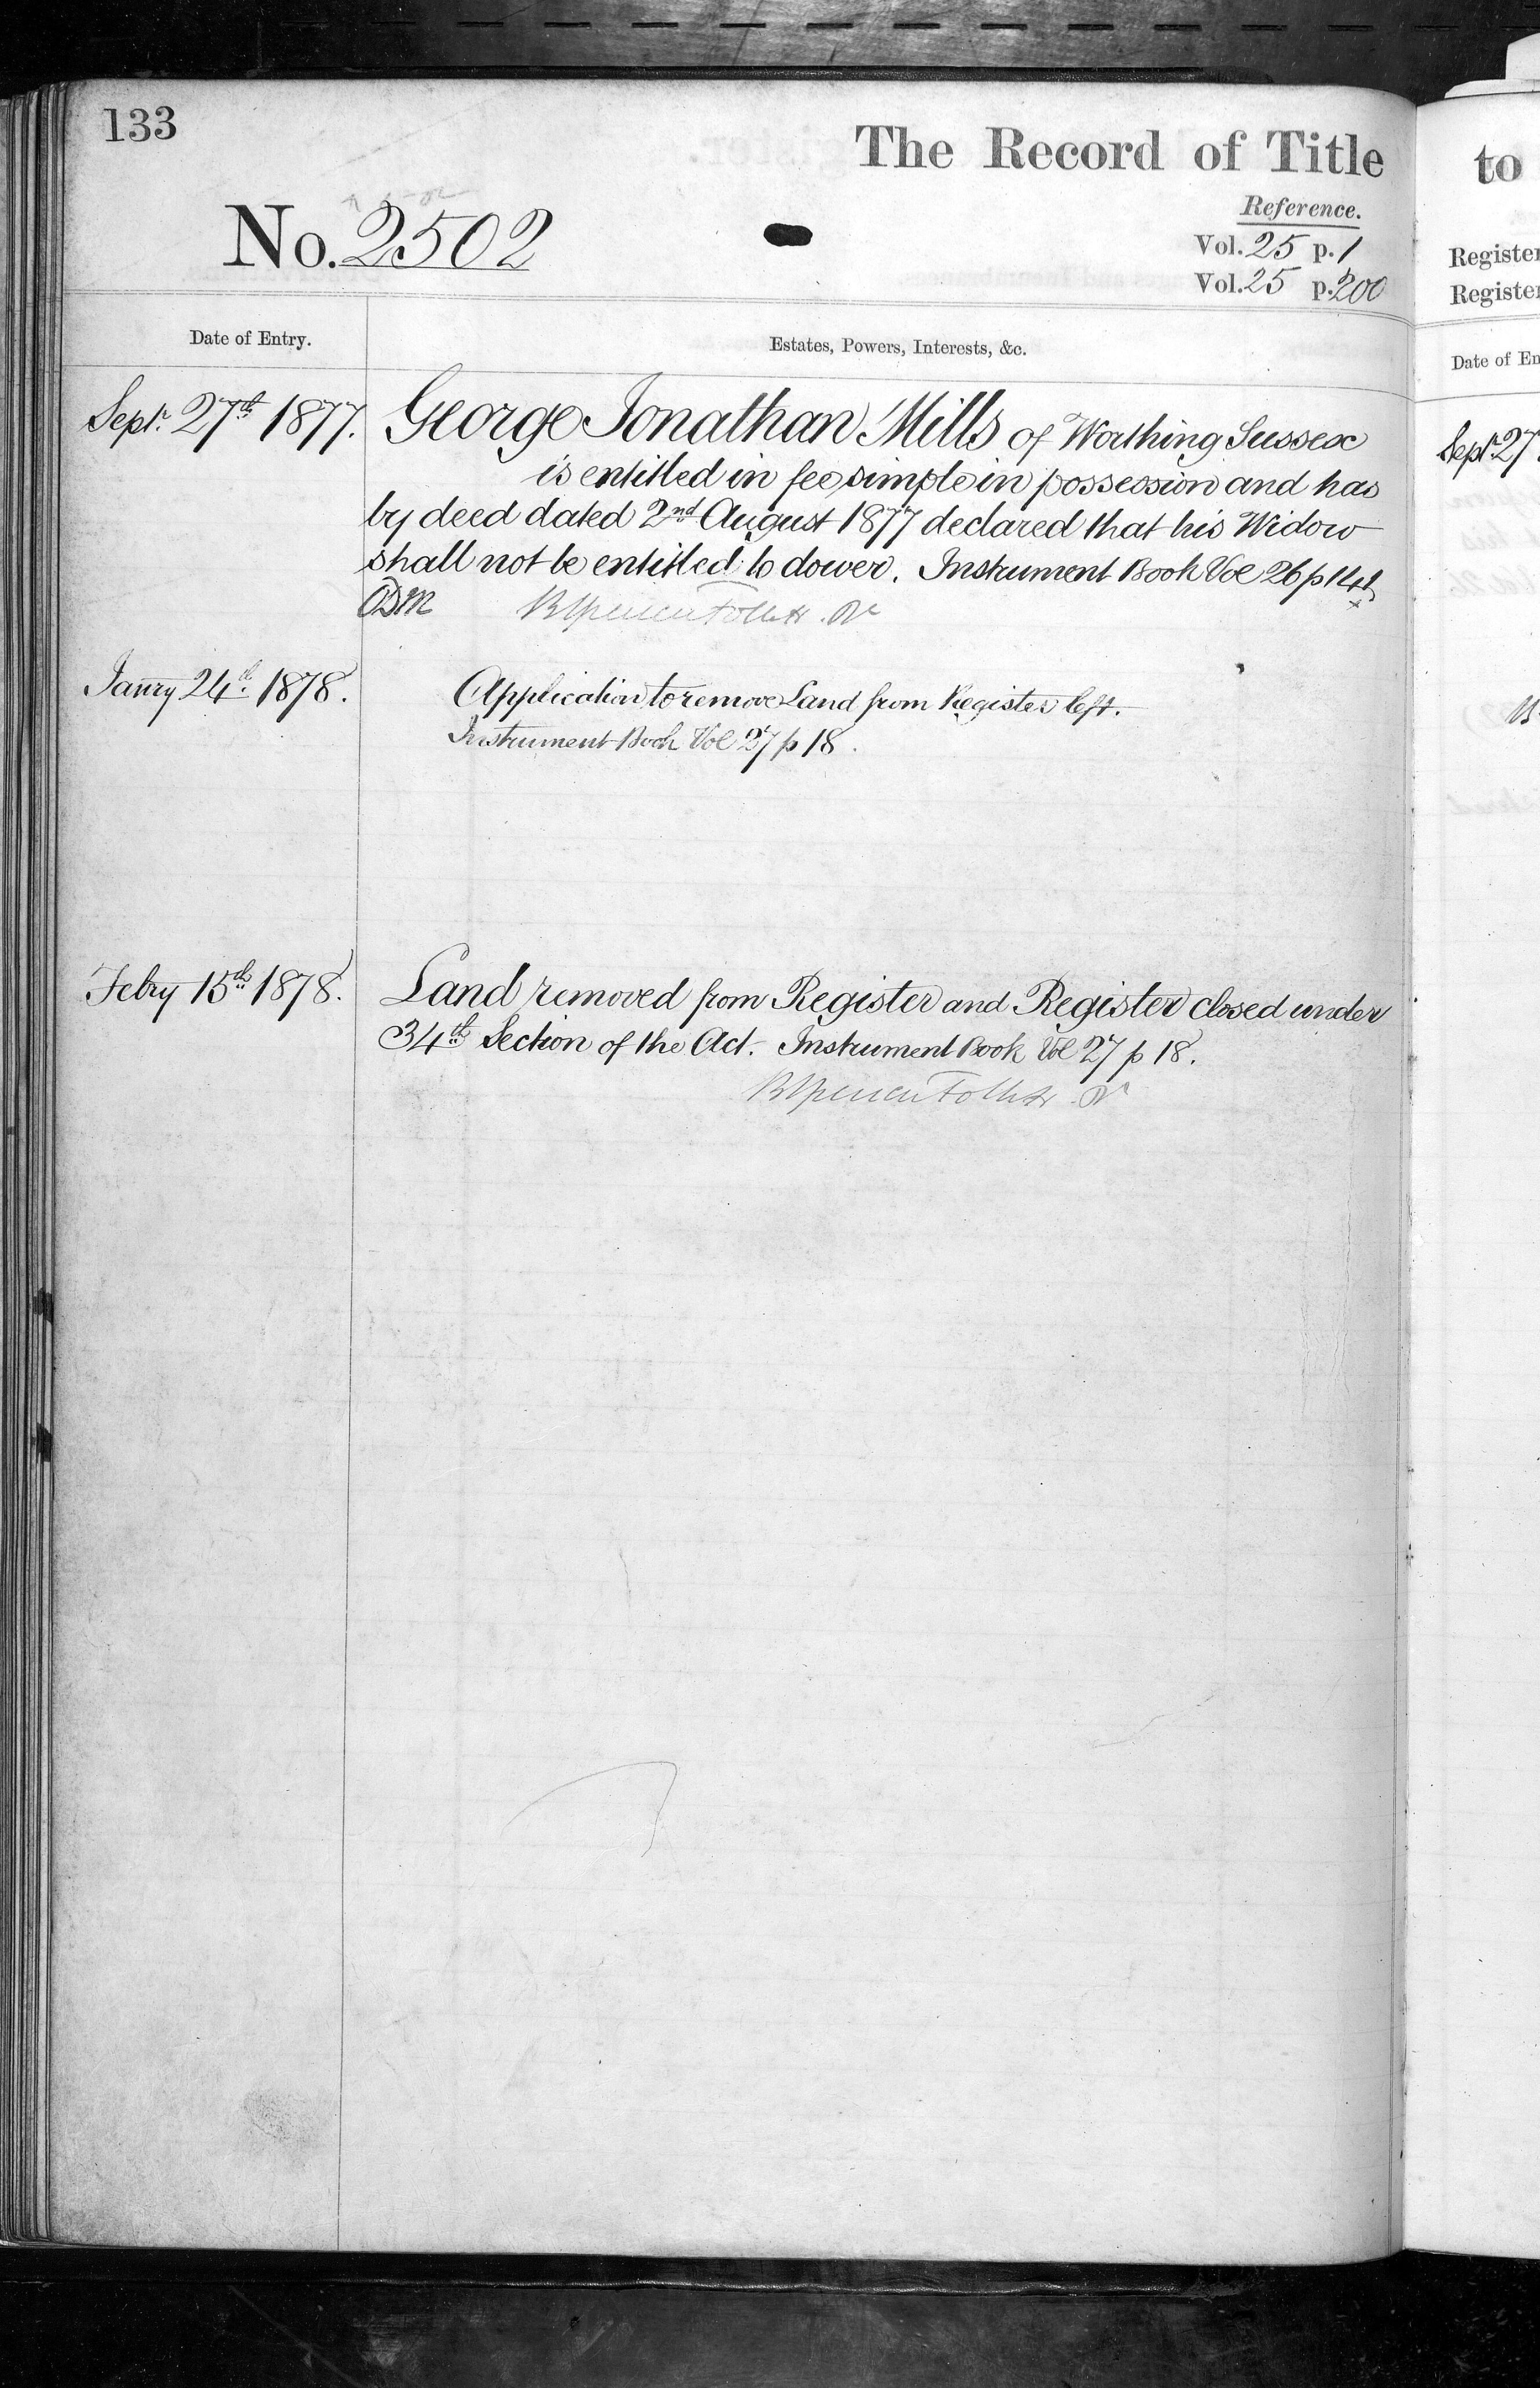 133
The Record of Title
Reference.
No. 2502
Vol. 25 p. 1
Vol. 25 p. 200
Date of Entry.
Estates, Powers, Interests, &c.
Sept. 27th 1877. George Jonathan Mills of Worthing Sussex
is entitled in fee simple in possession and has
by deed dated 2nd August 1877 declared that his Widow
shall not be entitled to dower. Instrument Book Vol 26 p 141
Janry 24th 1878. Application to remove Land from Register left.
Instrument Book Vol 27 p 18.
Febry 15th 1878. Land removed from Register and Register closed under
34th Section of the Act. Instrument Book Vol 27 p 18.
to
Register
Register
Date of En
Sept 27